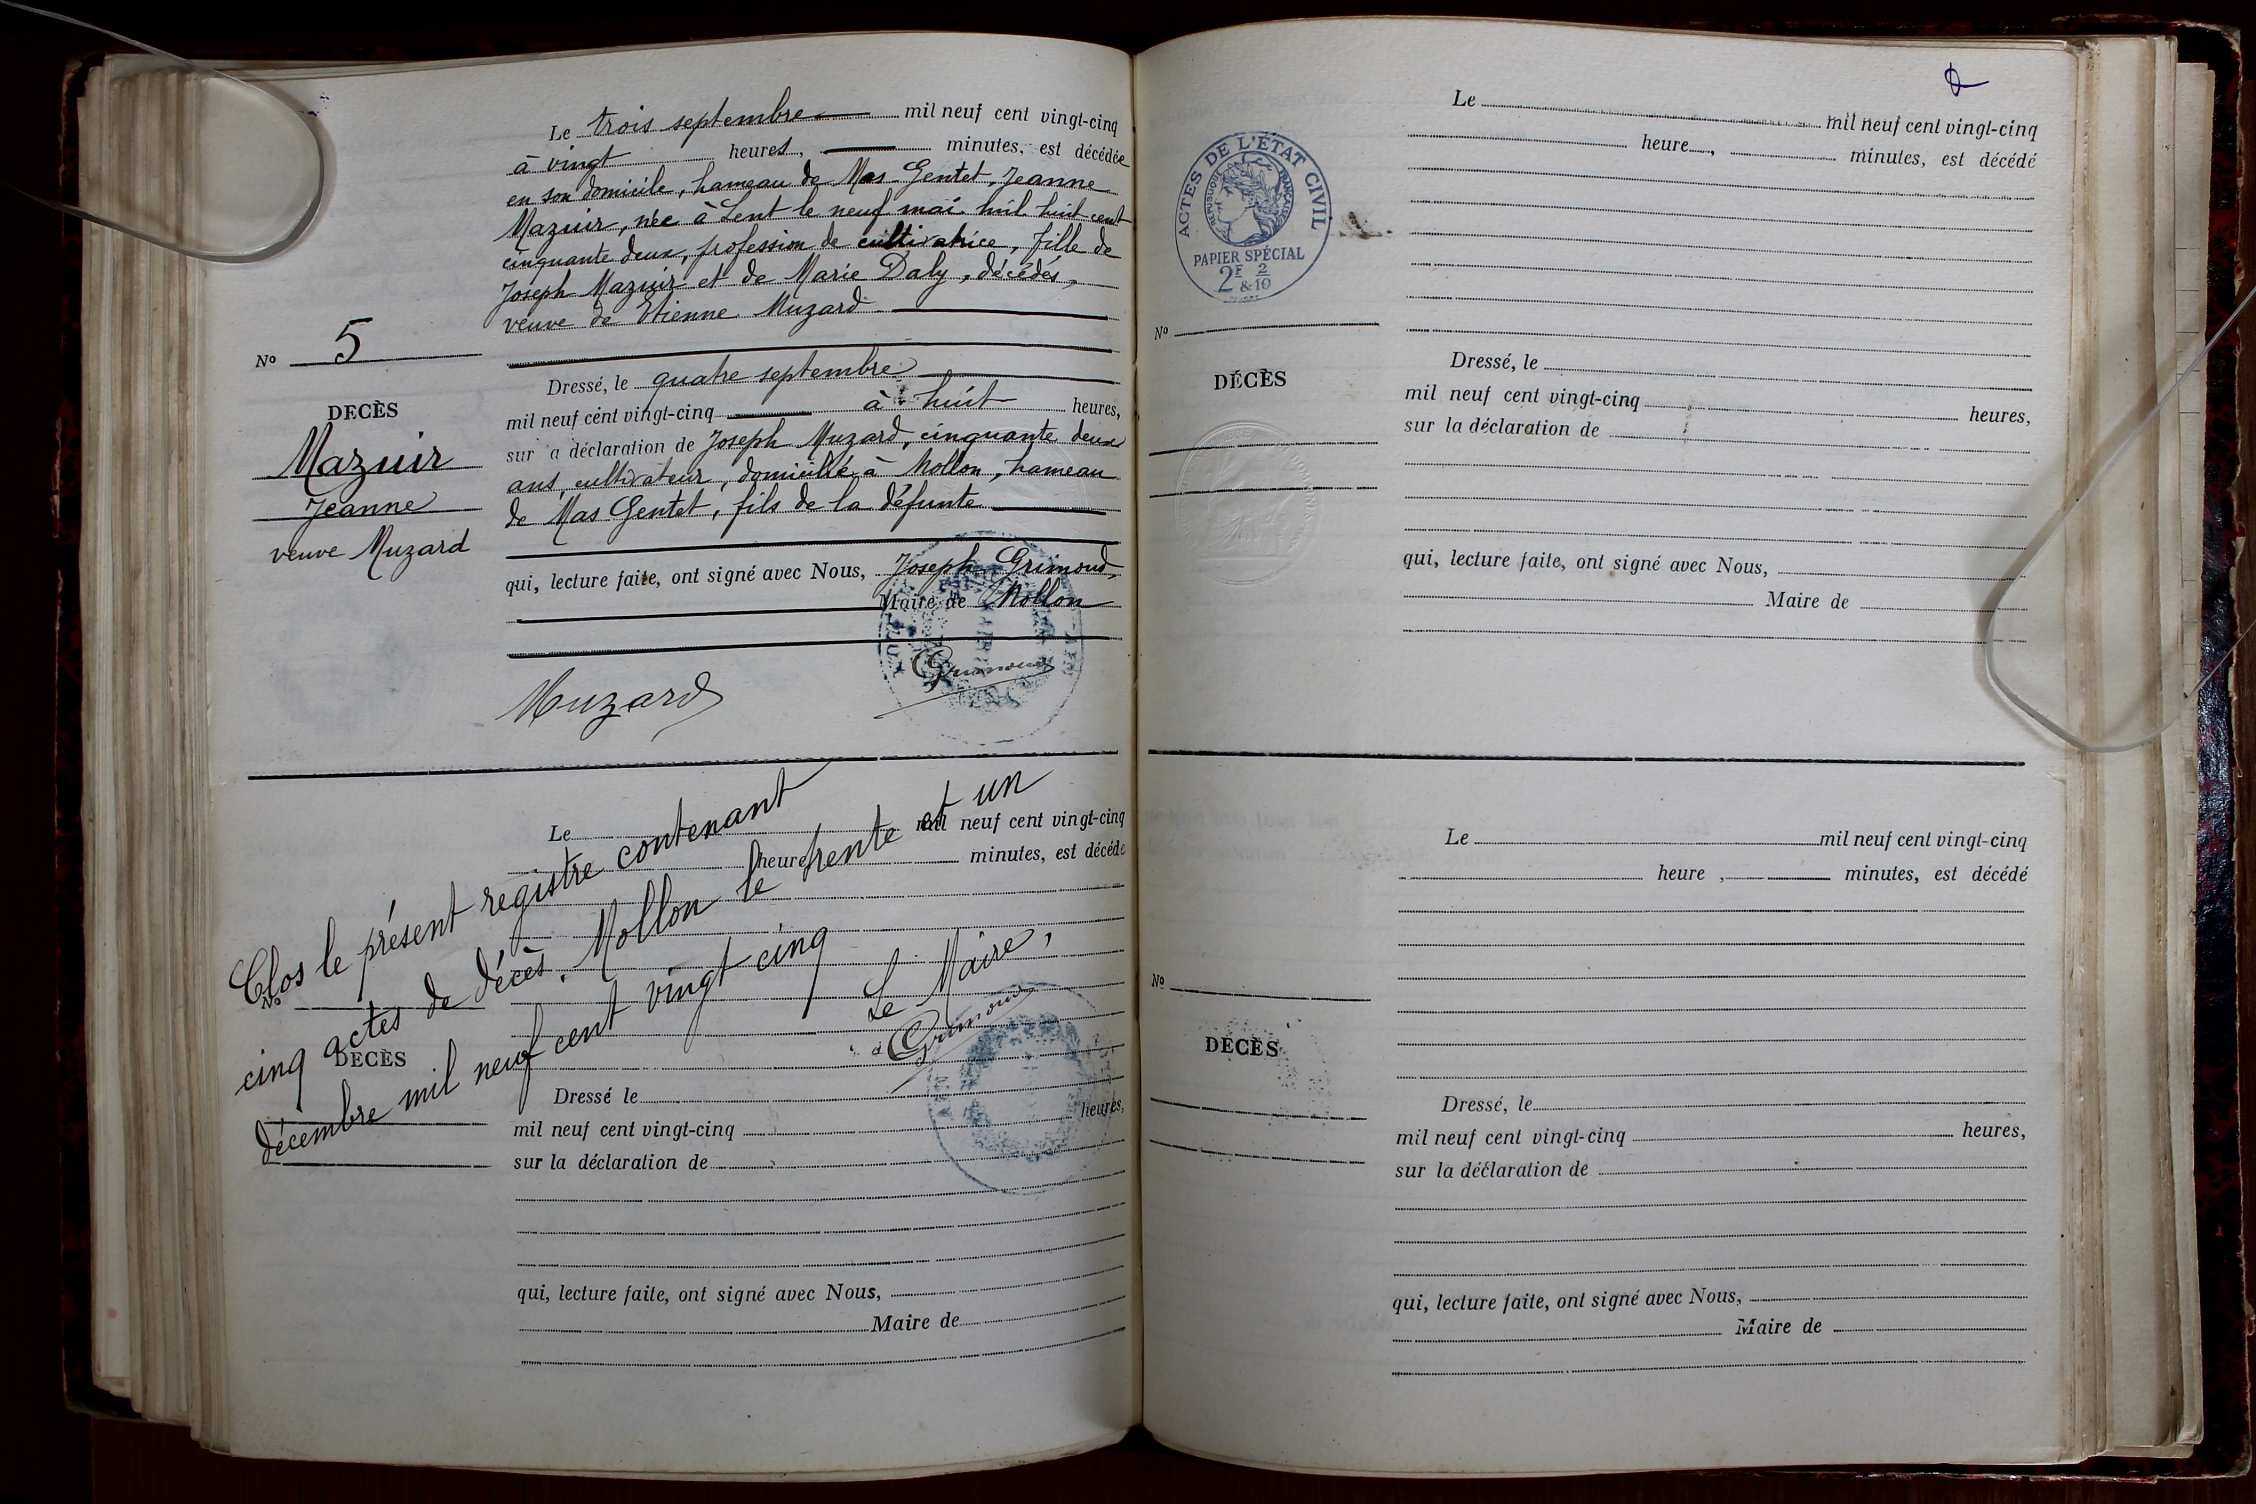 Le trois septembre mil neuf cent vingt-cinq
à vingt heures, minutes, est décédée
en son domicile, hameau de Mas Gentet, Jeanne
Mazuir, née à Lent le neuf mai mil huit cent
cinquante deux, profession de cultivatrice, fille de
Joseph Mazuir et de Marie Daly, décédés,
veuve de Etienne Muzard
No 5
DECÈS
Mazuir
Jeanne
veuve Muzard
Dressé, le quatre septembre
mil neuf cent vingt-cinq à huit heures,
sur a déclaration de Joseph Muzard, cinquante deux
ans, cultivateur, domicilié à Mollon, hameau
de Mas Gentet, fils de la défunte
qui, lecture faite, ont signé avec Nous, Joseph Grimoud,
Maire de Mollon
Grimoud
Muzard
Le mil neuf cent vingt-cinq
heure minutes, est décédé
Clos le présent registre contenant
cinq actes de décès. Mollon le trente et un
décembre mil neuf cent vingt cinq
Le Maire,
Grimoud
No
DECÈS
Dressé le
mil neuf cent vingt-cinq heures,
sur la déclaration de
qui, lecture faite, ont signé avec Nous,
Maire de
ACTES DE L'ÉTAT CIVIL
RÉPUBLIQUE FRANÇAISE
PAPIER SPÉCIAL
2F & 2/10
Le mil neuf cent vingt-cinq
heure , minutes, est décédé
No
DÉCÈS
Dressé, le
mil neuf cent vingt-cinq heures,
sur la déclaration de
qui, lecture faite, ont signé avec Nous,
Maire de
Le mil neuf cent vingt-cinq
heure , minutes, est décédé
No
DÉCÈS
Dressé, le
mil neuf cent vingt-cinq heures,
sur la déclaration de
qui, lecture faite, ont signé avec Nous,
Maire de